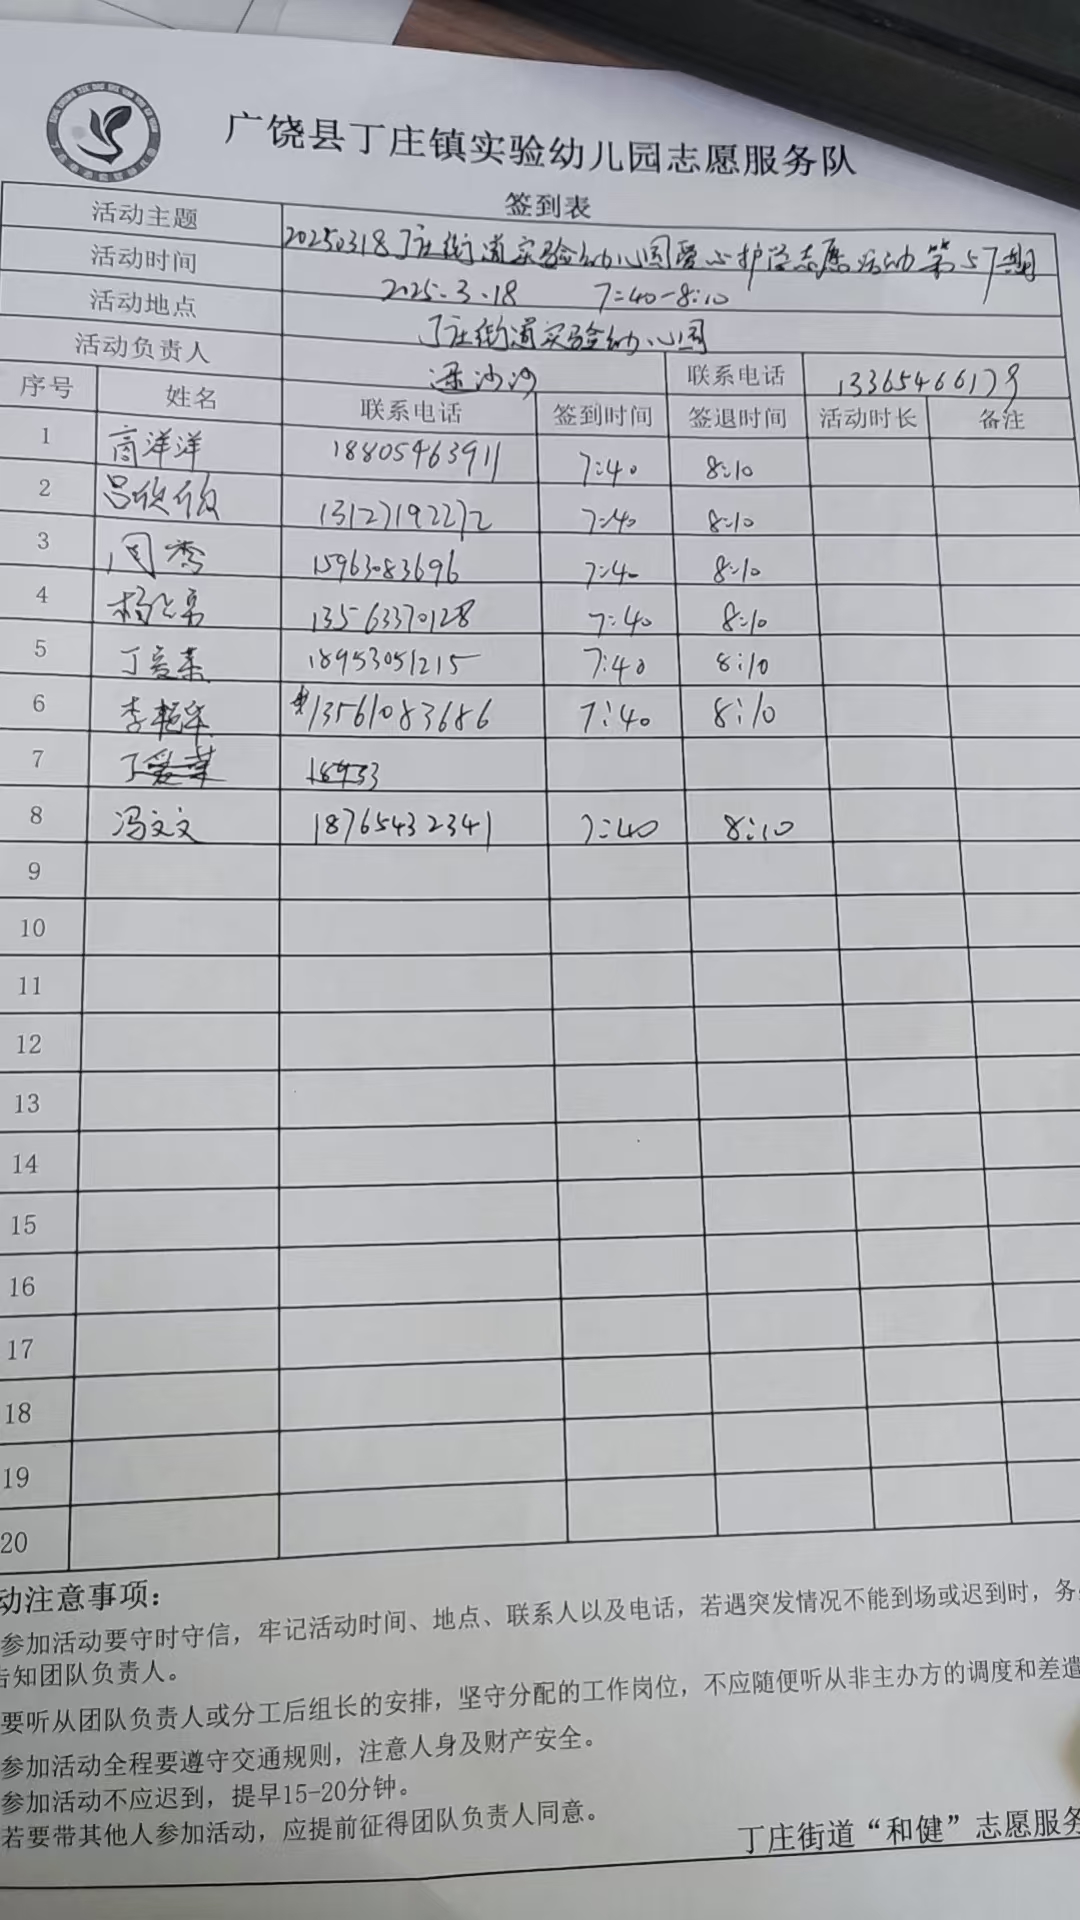 广饶县丁庄镇实验幼儿园志愿服务队
签到表
活动主题 20250318丁庄街道实验幼儿园爱心护学志愿活动第57期
活动时间 2025.3.18 7:40-8:10
活动地点 丁庄街道实验幼儿园
活动负责人 梁沙沙 联系电话 13365466179
序号 姓名 联系电话 签到时间 签退时间 活动时长 备注
1 高洋洋 18805463911 7:40 8:10
2 吕欣欣 13127192272 7:40 8:10
3 周秀 15963083696 7:40 8:10
4 13563370128 7:40 8:10
5 丁爱菜 18953051215 7:40 8:10
6 李艳华 13561083686 7:40 8:10
7 丁爱菜 18953
8 冯文文 18765432341 7:40 8:10
9
10
11
12
13
14
15
16
17
18
19
20
动注意事项：
参加活动要守时守信，牢记活动时间、地点、联系人以及电话，若遇突发情况不能到场或迟到时，务
告知团队负责人。
要听从团队负责人或分工后组长的安排，坚守分配的工作岗位，不应随便听从非主办方的调度和差遣
参加活动全程要遵守交通规则，注意人身及财产安全。
参加活动不应迟到，提早15-20分钟。
若要带其他人参加活动，应提前征得团队负责人同意。
丁庄街道“和健”志愿服务